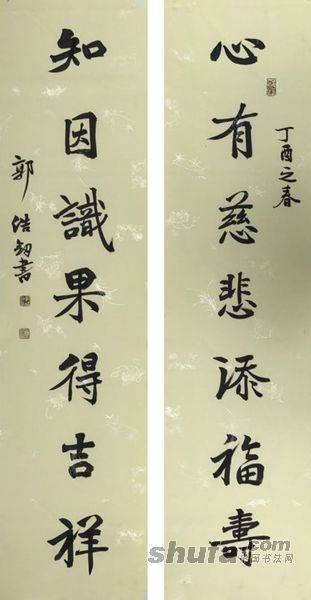 心有慈悲添福壽
丁酉之春
知因識果得吉祥
郭浩
書
shufa.com
中国书法网